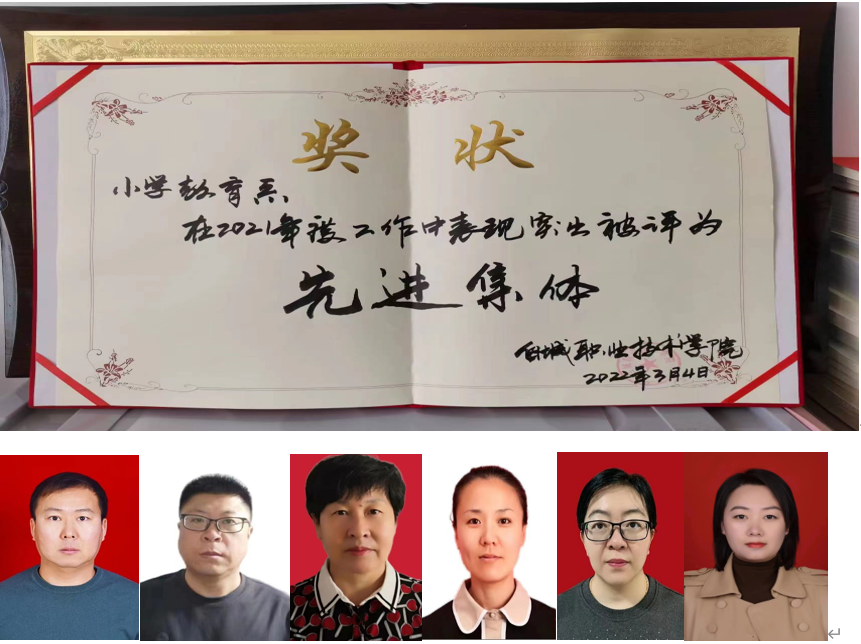 奖 状
小学教育系:
在2021年度工作中表现突出被评为
先进集体
白城职业技术学院
2022年3月4日